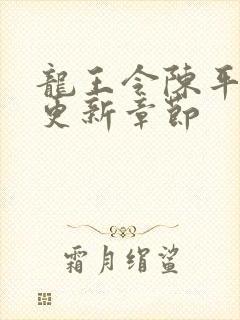 龍王令陳平
更新章節
霜月絹鯊